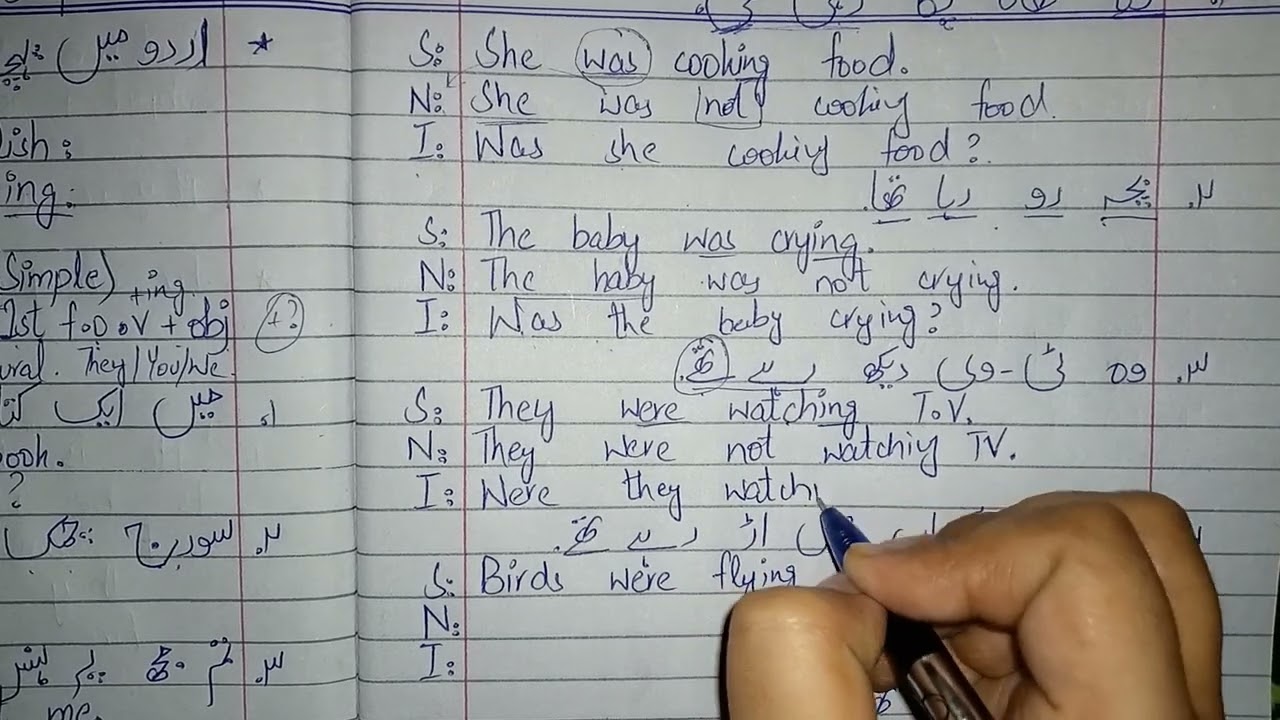 اردو میں *
lish:
ing:
Simple) +ing
1st f.o.v + obj (+?)
ural. They/You/We
میں ایک ۱۔
ook.
?
سورج ۲۔
۳۔
me.
S: She was cooking food.
N: She was not cooking food.
I: Was she cooking food?
۲۔ بچہ رو رہا تھا۔
S: The baby was crying.
N: The baby was not crying.
I: Was the baby crying?
۳۔ وہ ٹی-وی دیکھ رہے تھے۔
S: They were watching T.V.
N: They were not watching TV.
I: Were they watchi
اڑ رہے تھے۔
S: Birds were flying
N:
I: